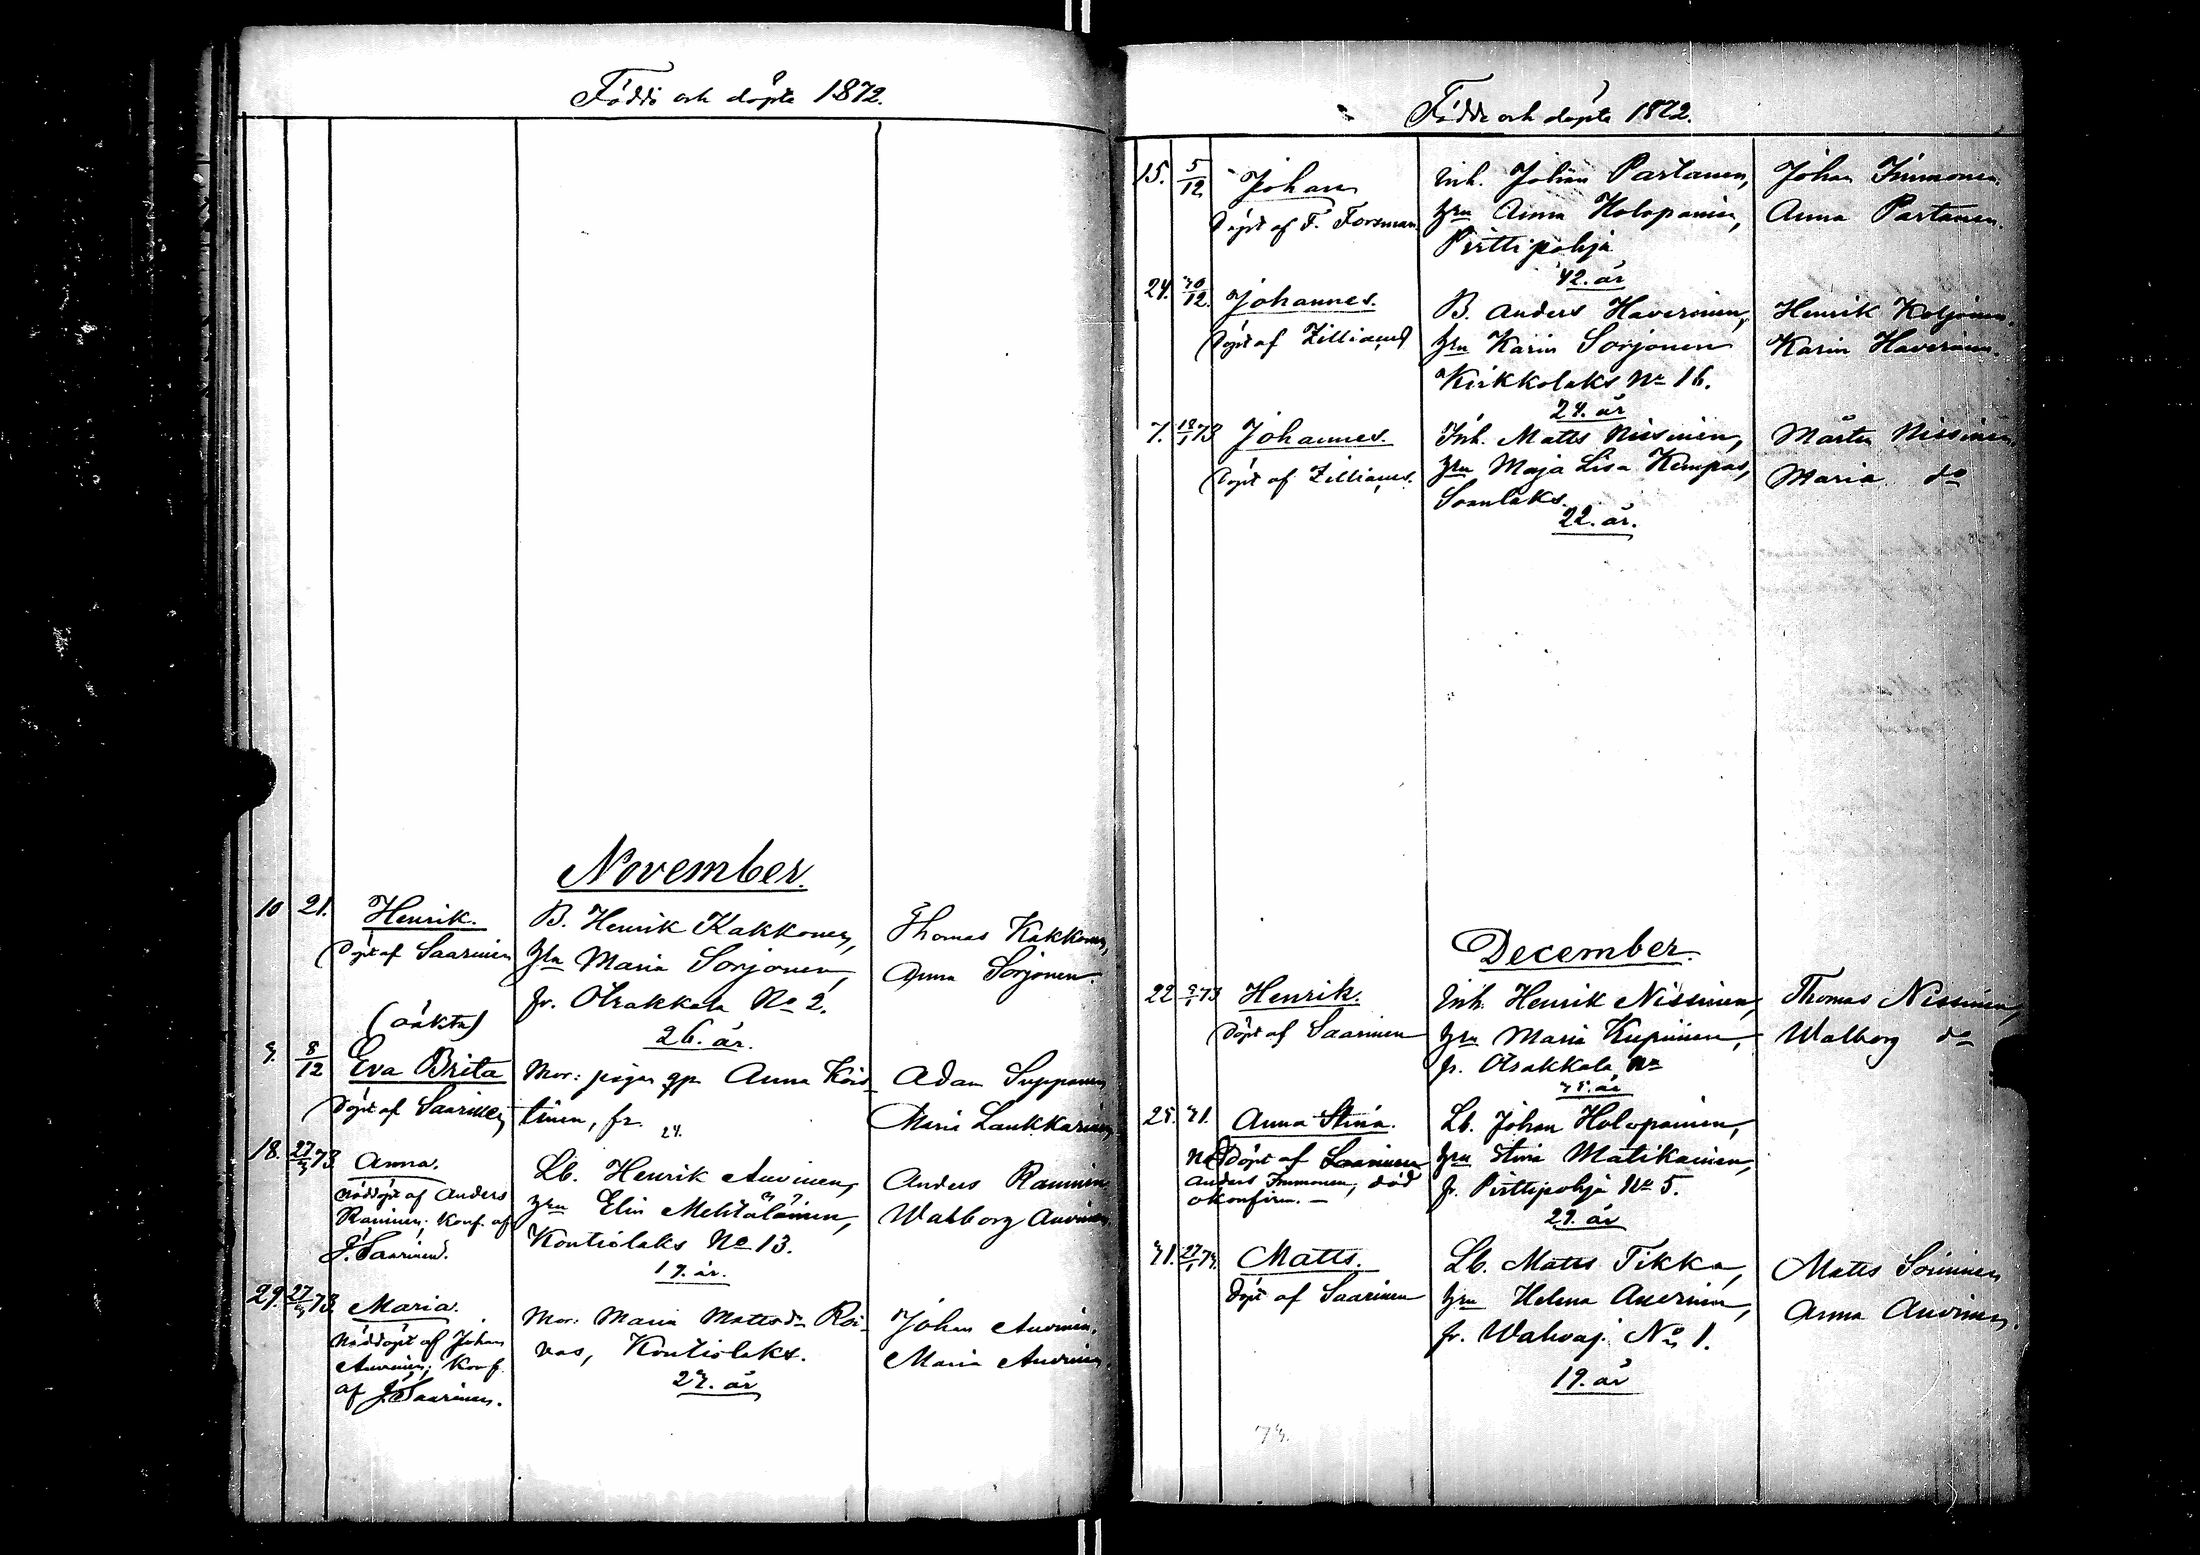 Födde och döpte 1872.
November.
10 21. Henrik. B. Henrik Kakkonen, Thomas Kakkonen,
Döpt af Saarinen hru Maria Sorjonen, Anna Sorjonen.
fr. Otrakkala No 2.
(oäkta) 26. år.
8/12 Eva Brita Mor: pigan Anna Kois- Adam Supponen
Döpt af Saarinen tinen, fr. Maria Laukkarinen
24.
18. 27/3 73 Anna. Lb. Henrik Auvinen, Anders Raninen
Nöddöpt af Anders hru Elin Mehtäläinen, Walborg Auvinen
Raninen; Konf. af Kontiolaks No 13.
J. Saarinen. 19. år.
29. 27/3 73 Maria. Mor: Maria Mattsdr Roi- Johan Auvinen.
Nöddöpt af Johan vas, Kontiolaks. Maria Auvinen.
Auvinen; Konf. 23. år
af J. Saarinen.
Födde och döpte 1872.
15. 5/12 Johan Inh. Johan Partanen, Johan Immonen.
Döpt af F. Forsman hru Anna Holopainen, Anna Partanen.
Pirttipohja
42. år
24. 30/12. Johannes. B. Anders Haverinen, Henrik Koljonen.
Döpt af Zilliacus hru Karin Sorjonen Karin Haverinen.
Kirkkolaks No 16.
24. år
7. 18/1 73 Johannes. Inh. Matts Nissinen, Mårten Nissinen,
Döpt af Zilliacus. hru Maja Lisa Kempas, Maria do
Soanlaks.
22. år.
December.
22 73 Henrik. Inh. Henrik Nissinen, Thomas Nissinen,
Döpt af Saarinen hru Maria Kupiinen, Walborg do
fr. Otrakkala No
35. år
25. 31. Anna Stina. Lb. Johan Holopainen,
Nöddöpt af Saarinen hru Stina Matikainen,
Anders Immonen, död fr. Pirttipohja No 5.
okonfirm. — 29. år
31. 27/1 73. Matts. Lb. Matts Tikka, Matts Soininen
Döpt af Saarinen hru Helena Auvinen, Anna Auvinen.
fr. Walvaj. No 1.
19. år
73.